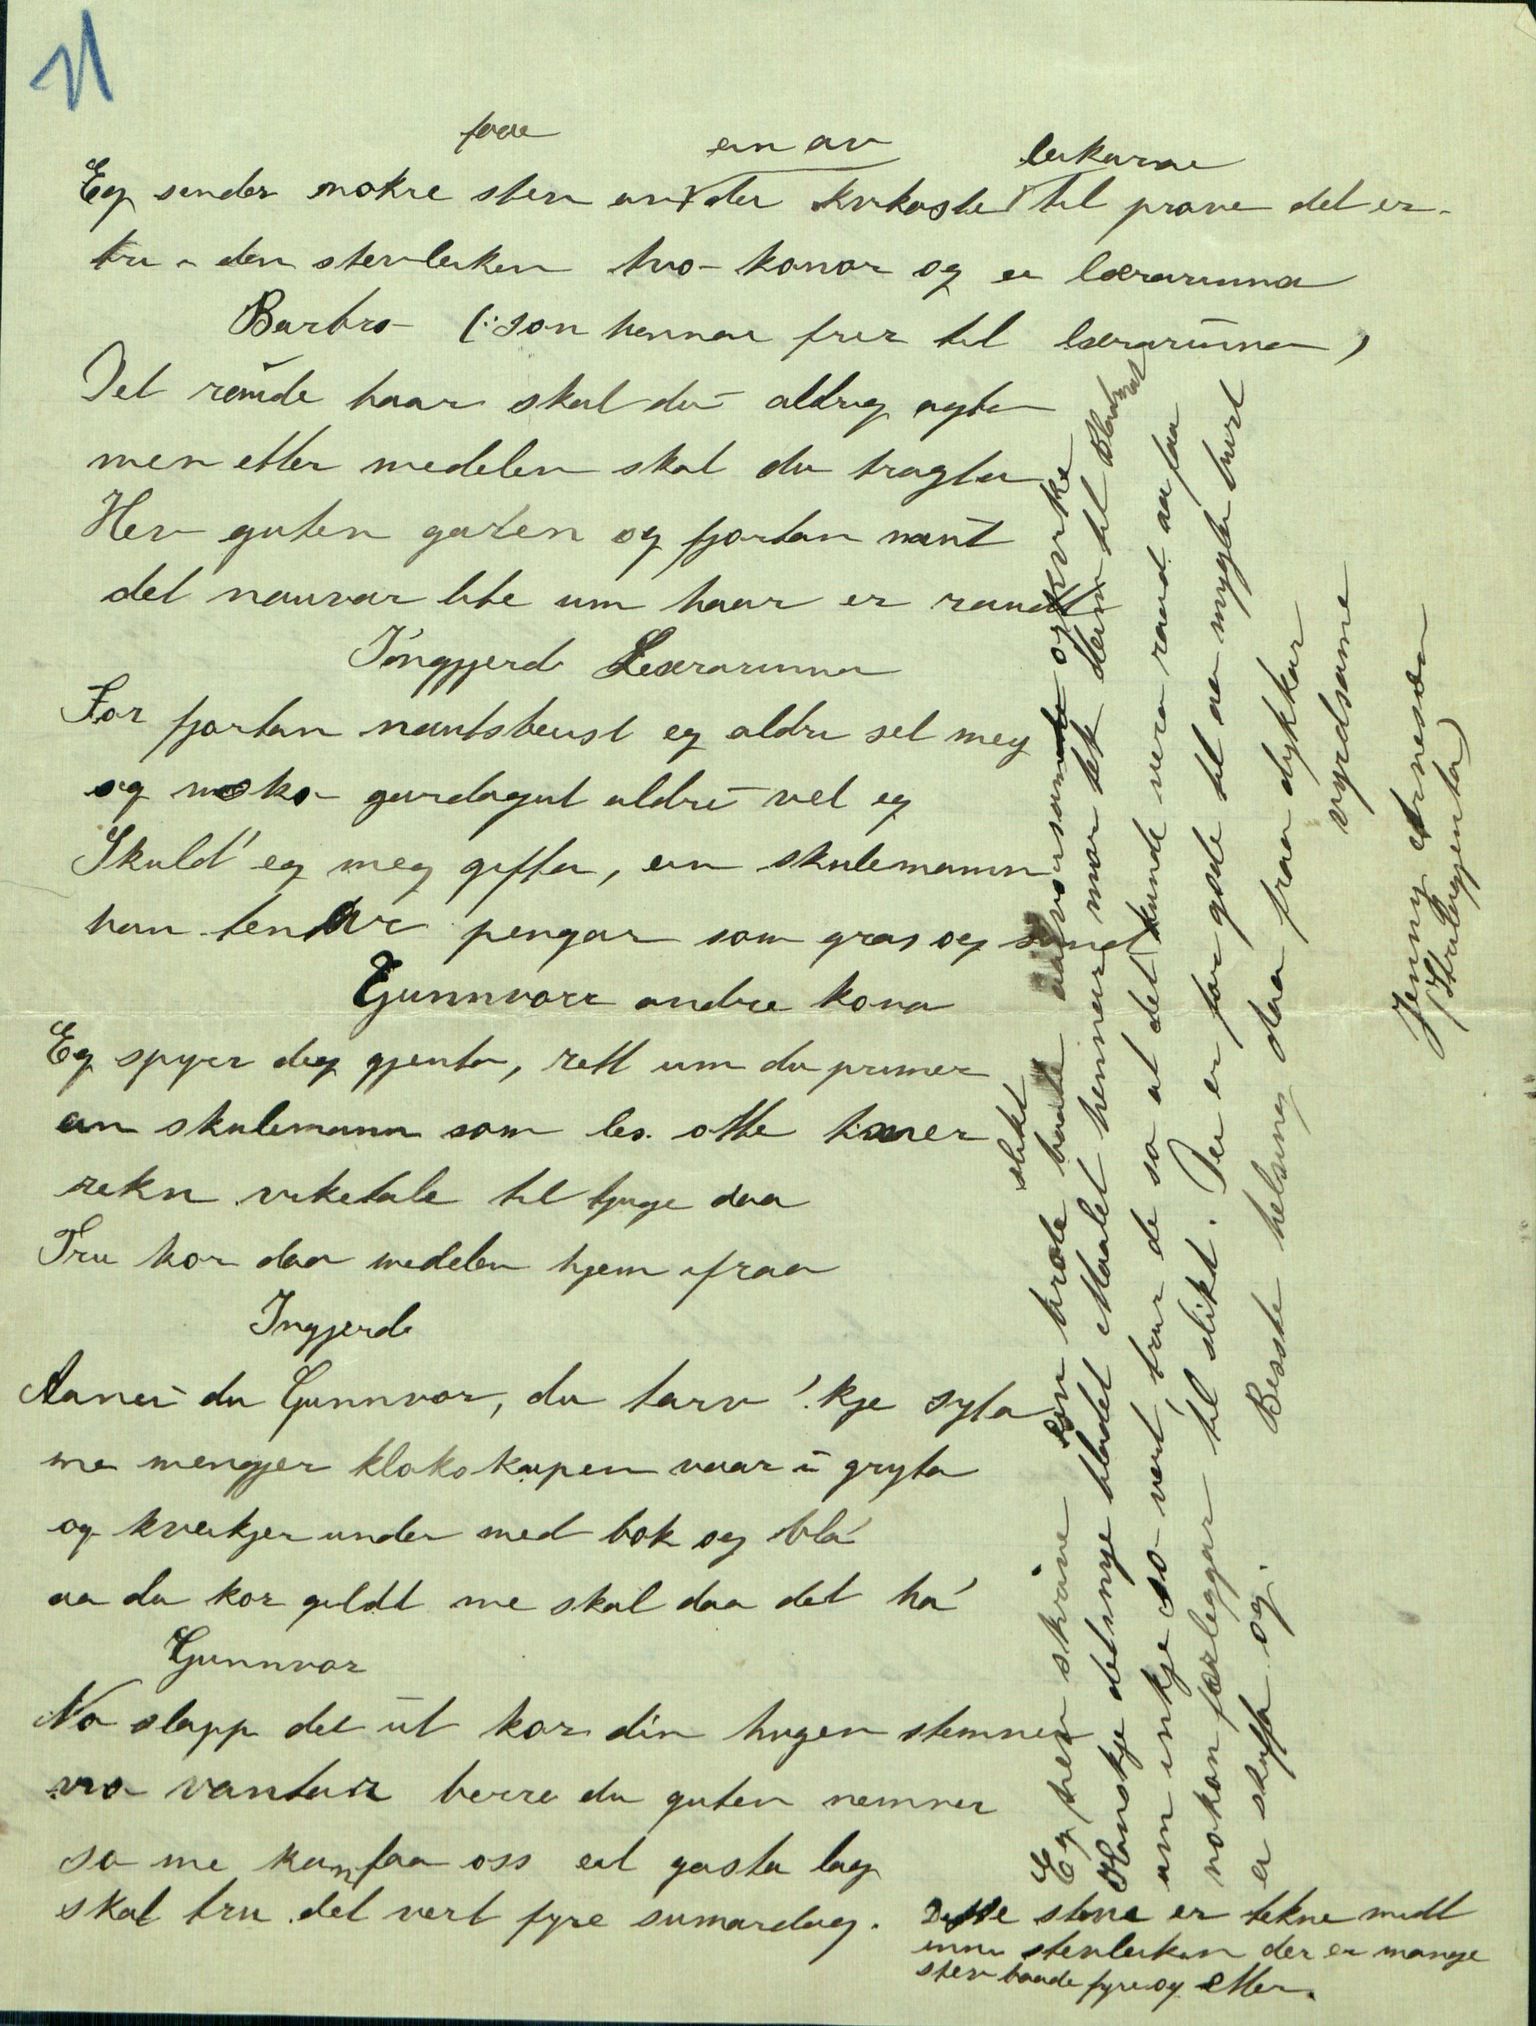 faae
ein av
leikarne
Eg sender nokre stev av dei kvikaste til prøve det er
tri i den stevleiken tvo konor og ei lærarinna
Barbro (: son hennar frir til lærarinna )
Det raude haar skal du aldrig agta
men etter medelen skal du tragta
Hev guten garen og fjortan naut
det nauvar lite um haar er raudt
Ingjerd Lærarinna
For fjortan nautsbeist eg aldri sel meg
og noko gardagut aldri vel eg
Skuld' eg meg gifta, ein skulemann
han tenar pengar som gras og sand
Gunnvor andre kona
Eg spyr deg gjenta, rett um du primer
ein skulemann som les otte timer
rekn viketale til tjuge daa
Tru kor daa medelen kjem ifraa
Ingjerd
Aanei du Gunnvor, du tarv 'kje syta
me mengjer klokskapen vaar i gryta
og kveikjer under med bok og bla'
aa du kor gildt me skal daa det ha'
Gunnvor
No slapp det ut kor din hugen stemner
no vantar berre du guten nemner
so me kann faa oss eit gasta lag
skal tru det vert fyre sumardag.
Desse steva er tekne midt
inni stevleiken der er mange
stev baade fyre og etter.
slikt
Eg hev skrive ein hrole baade aalvorsame og kvike
Kanskje det nye bladet Maalet hennar mor tek deim til Bladmat
um inkje so vert trur de so at det kunde vera raad aa faa
nokon forleggar til slikt. Dei er for gode til aa mygla burt
ei skuffa og. Beste helsing daa fraa dykkar
vyrdsame
Jenny Arnesen
(Strilegjenta)